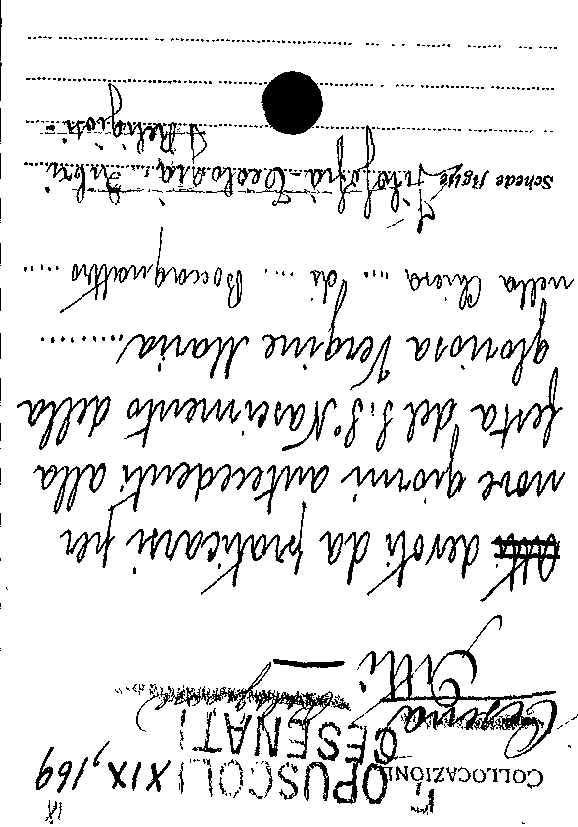 COLLOCAZIONE OPUSCOLI XIX, 169
CESENATI
Cesena
Atti —
devoti da praticarsi per
nove giorni antecedenti alla
festa del S.S° Nascimento della
gloriosa Vergine Maria ........
nella Chiesa ... di ... Boccaquattro ....
Schede figlie Filosofia - Teologia, Altri
Religioni -